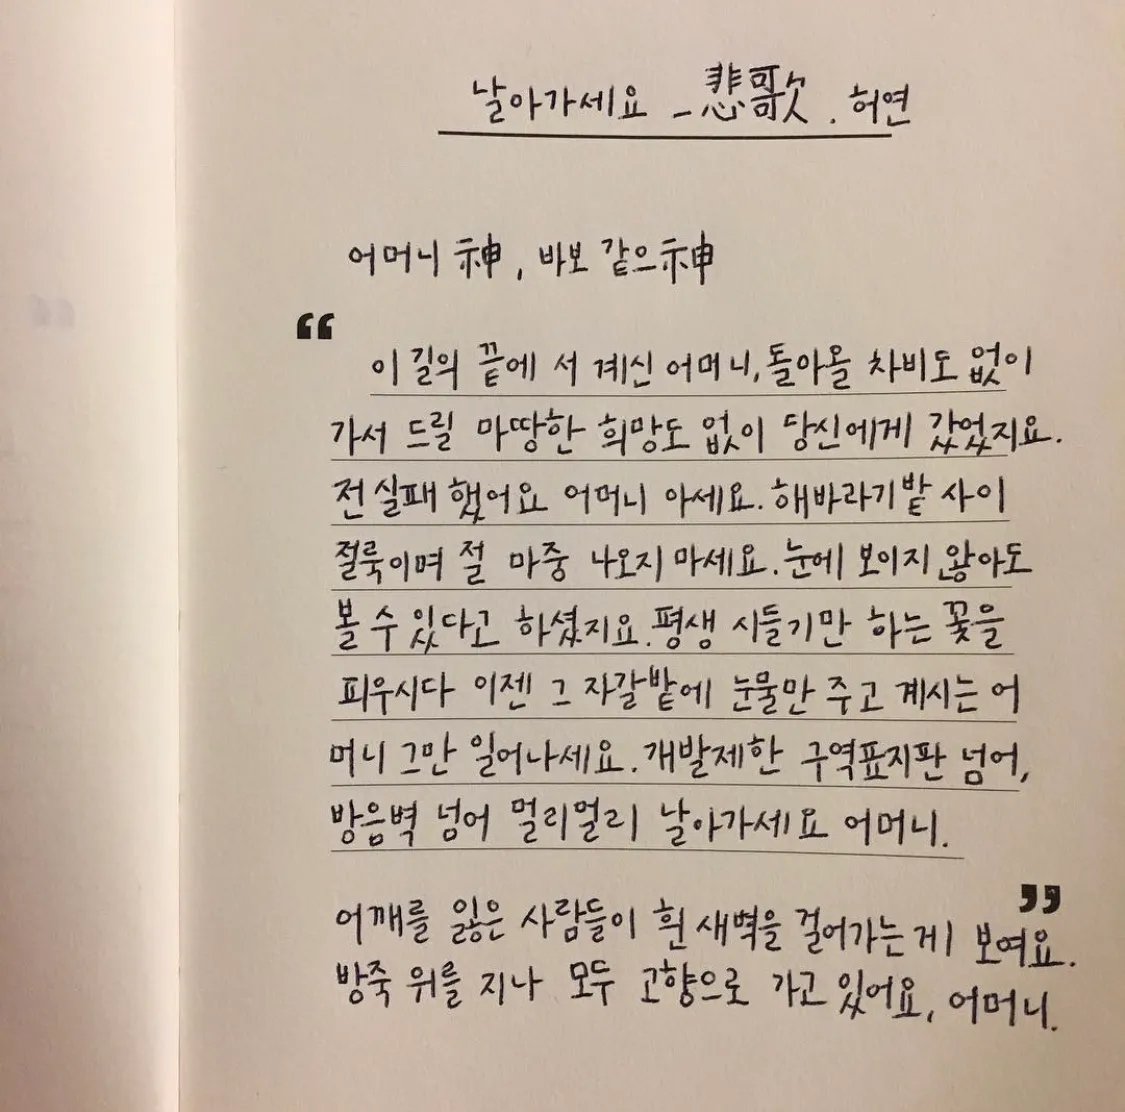 날아가세요 - 悲歌 . 허연
어머니 神, 바보 같으神
“
이 길의 끝에 서 계신 어머니, 돌아올 차비도 없이
가서 드릴 마땅한 희망도 없이 당신에게 갔었지요.
전 실패했어요 어머니 아세요. 해바라기밭 사이
절룩이며 절 마중 나오지 마세요. 눈에 보이지 않아도
볼 수 있다고 하셨지요. 평생 시들기만 하는 꽃을
피우시다 이젠 그 자갈밭에 눈물만 주고 계시는 어
머니 그만 일어나세요. 개발제한 구역표지판 넘어,
방음벽 넘어 멀리멀리 날아가세요 어머니.
”
어깨를 잃은 사람들이 흰 새벽을 걸어가는 게 보여요.
방죽 위를 지나 모두 고향으로 가고 있어요, 어머니.